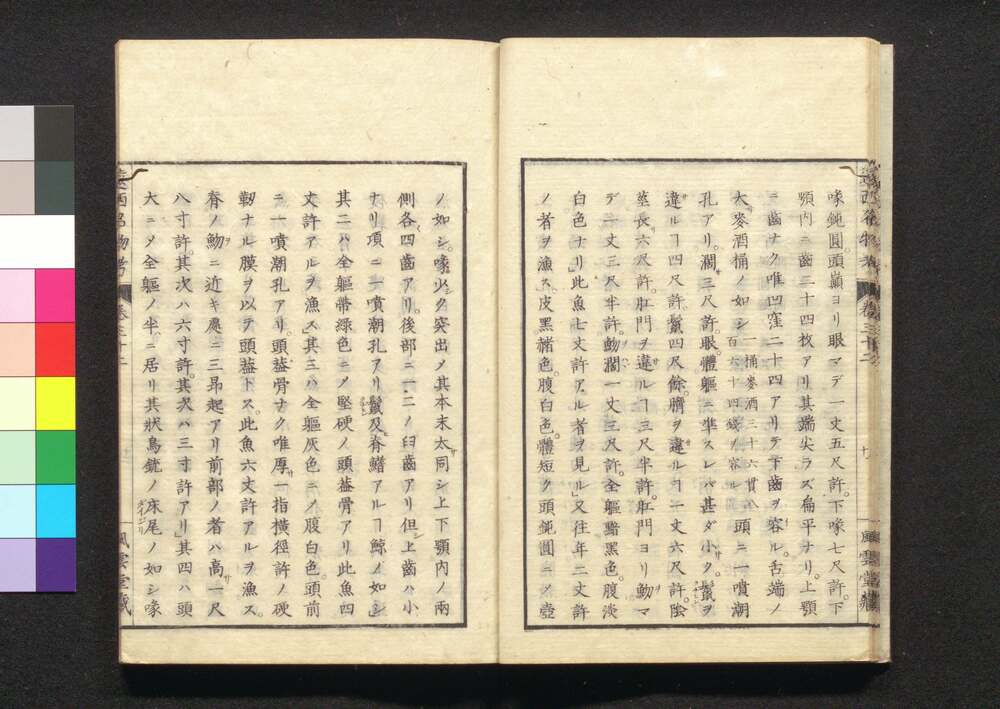 喙鈍圓。頭巓ヨリ眼マデ一丈五尺許。下喙七尺許。下
顎内ニ齒二十四枚アリ其端尖ラズ扁平ナリ。上顎
ニ齒ナク唯凹窪二十四アリテ下齒ヲ容ル。舌端ノ
大サ麥酒桶ノ如シ一桶麥酒三十六貫八百六十四錢ヲ容ル頭ニ一噴潮
孔アリ。濶三尺許。眼。體軀ニ準スレバ甚ダ小ク。鬣ヲ
違ルヿ四尺許鬣四尺餘。臍ヲ違ルヿ一丈六尺許陰
莖長サ六尺許。肛門ヲ違ルヿ三尺半許。肛門ヨリ魩マ
デ一丈三尺半許。魩濶一丈三尺許。全軀黯黑色。腹淡
白色ナリ」此魚七丈許アル者ヲ見ル」又往年二丈許
ノ者ヲ漁ス。皮黑赭色。腹白色。體短ク頭鈍圓ニメ壺
ノ如シ。喙少ク突出シ其本末太サ同シ上下顎内ノ兩
側各四齒アリ。後部ニ一二ノ臼齒アリ但シ上齒ハ小
ナリ項ニ一噴潮孔アリ鬣及脊鰭アルヿ鯨ノ如シ」
其二ハ全軀帶綠色ニメ堅硬ノ頭葢骨アリ此魚四
丈許アルヲ漁ス」其三ハ全軀灰色ニメ腹白色。頭前
ニ一噴潮孔アリ。頭葢骨ナク唯厚サ一指橫徑許ノ硬
靭ナル膜ヲ以テ頭葢トス。此魚六丈許アルヲ漁ス。
脊ノ魩ニ近キ處ニ三昂起アリ前部ノ者ハ高サ一尺
八寸許。其次ハ六寸許。其次ハ三寸許アリ」其四ハ頭
大ニメ全軀ノ半ニ居リ其狀鳥銃ノ床尾ノ如シ喙